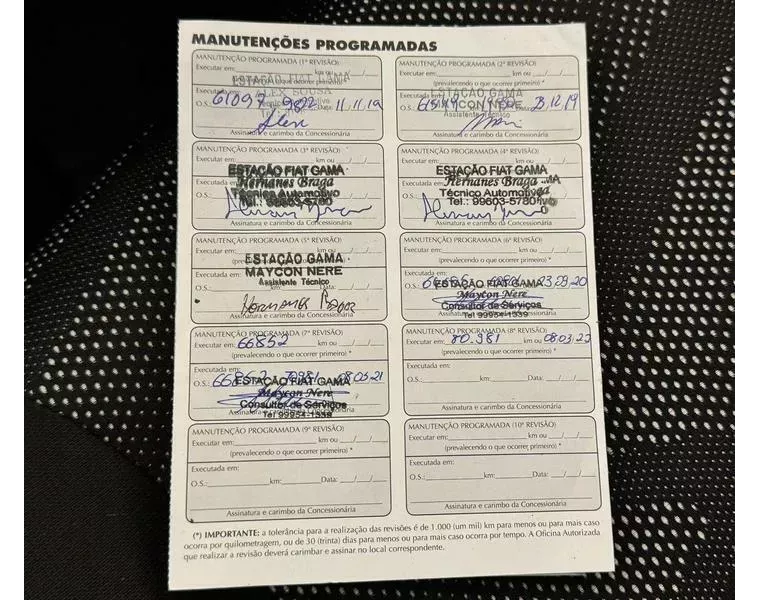 MANUTENÇÕES PROGRAMADAS
MANUTENÇÃO PROGRAMADA (1ª REVISÃO)
Executar em: km ou / /
ESTAÇÃO FIAT GAMA
ALEX SOUSA
O.S.: 61097 9822 11.11.19
Alex
Assinatura e carimbo da Concessionária
MANUTENÇÃO PROGRAMADA (2ª REVISÃO)
Executar em: km ou / /
(prevalecendo o que ocorrer primeiro) *
ESTAÇÃO GAMA
MAYCON NERE
Assistente Técnico
O.S.: .12.19
Assinatura e carimbo da Concessionária
MANUTENÇÃO PROGRAMADA (3ª REVISÃO)
Executar em: km ou / /
ESTAÇÃO FIAT GAMA
Hernanes Braga
Executada em:
Técnico Automotivo
Tel.: 99603-5780
Assinatura e carimbo da Concessionária
MANUTENÇÃO PROGRAMADA (4ª REVISÃO)
Executar em: km ou / /
ESTAÇÃO FIAT GAMA
Hernanes Braga
Técnico Automotivo
Tel.: 99603-5780
Assinatura e carimbo da Concessionária
MANUTENÇÃO PROGRAMADA (5ª REVISÃO)
Executar em: km ou / /
ESTAÇÃO GAMA
Executada em:
MAYCON NERE
Assistente Técnico
O.S.: km: Data: / /
Assinatura e carimbo da Concessionária
MANUTENÇÃO PROGRAMADA (6ª REVISÃO)
Executar em: km ou / /
(prevalecendo o que ocorrer primeiro) *
Executada em:
O.S.: ESTAÇÃO FIAT GAMA 20
Maycon Nere
Consultor de Serviços
Tel 99954-1339
MANUTENÇÃO PROGRAMADA (7ª REVISÃO)
Executar em: 66852 km ou / /
(prevalecendo o que ocorrer primeiro) *
Executada em:
O.S.: ESTAÇÃO FIAT GAMA 08.03.21
Maycon Nere
Consultor de Serviços
Tel 99954-1339
MANUTENÇÃO PROGRAMADA (8ª REVISÃO)
Executar em: 80.981 km ou 08.03.22
(prevalecendo o que ocorrer primeiro) *
Executada em:
O.S.: km: Data: / /
Assinatura e carimbo da Concessionária
MANUTENÇÃO PROGRAMADA (9ª REVISÃO)
Executar em: km ou / /
(prevalecendo o que ocorrer primeiro) *
Executada em:
O.S.: km: Data: / /
Assinatura e carimbo da Concessionária
MANUTENÇÃO PROGRAMADA (10ª REVISÃO)
Executar em: km ou / /
(prevalecendo o que ocorrer primeiro) *
Executada em:
O.S.: km: Data: / /
Assinatura e carimbo da Concessionária
(*) IMPORTANTE: a tolerância para a realização das revisões é de 1.000 (um mil) km para menos ou para mais caso
ocorra por quilometragem, ou de 30 (trinta) dias para menos ou para mais caso ocorra por tempo. A Oficina Autorizada
que realizar a revisão deverá carimbar e assinar no local correspondente.